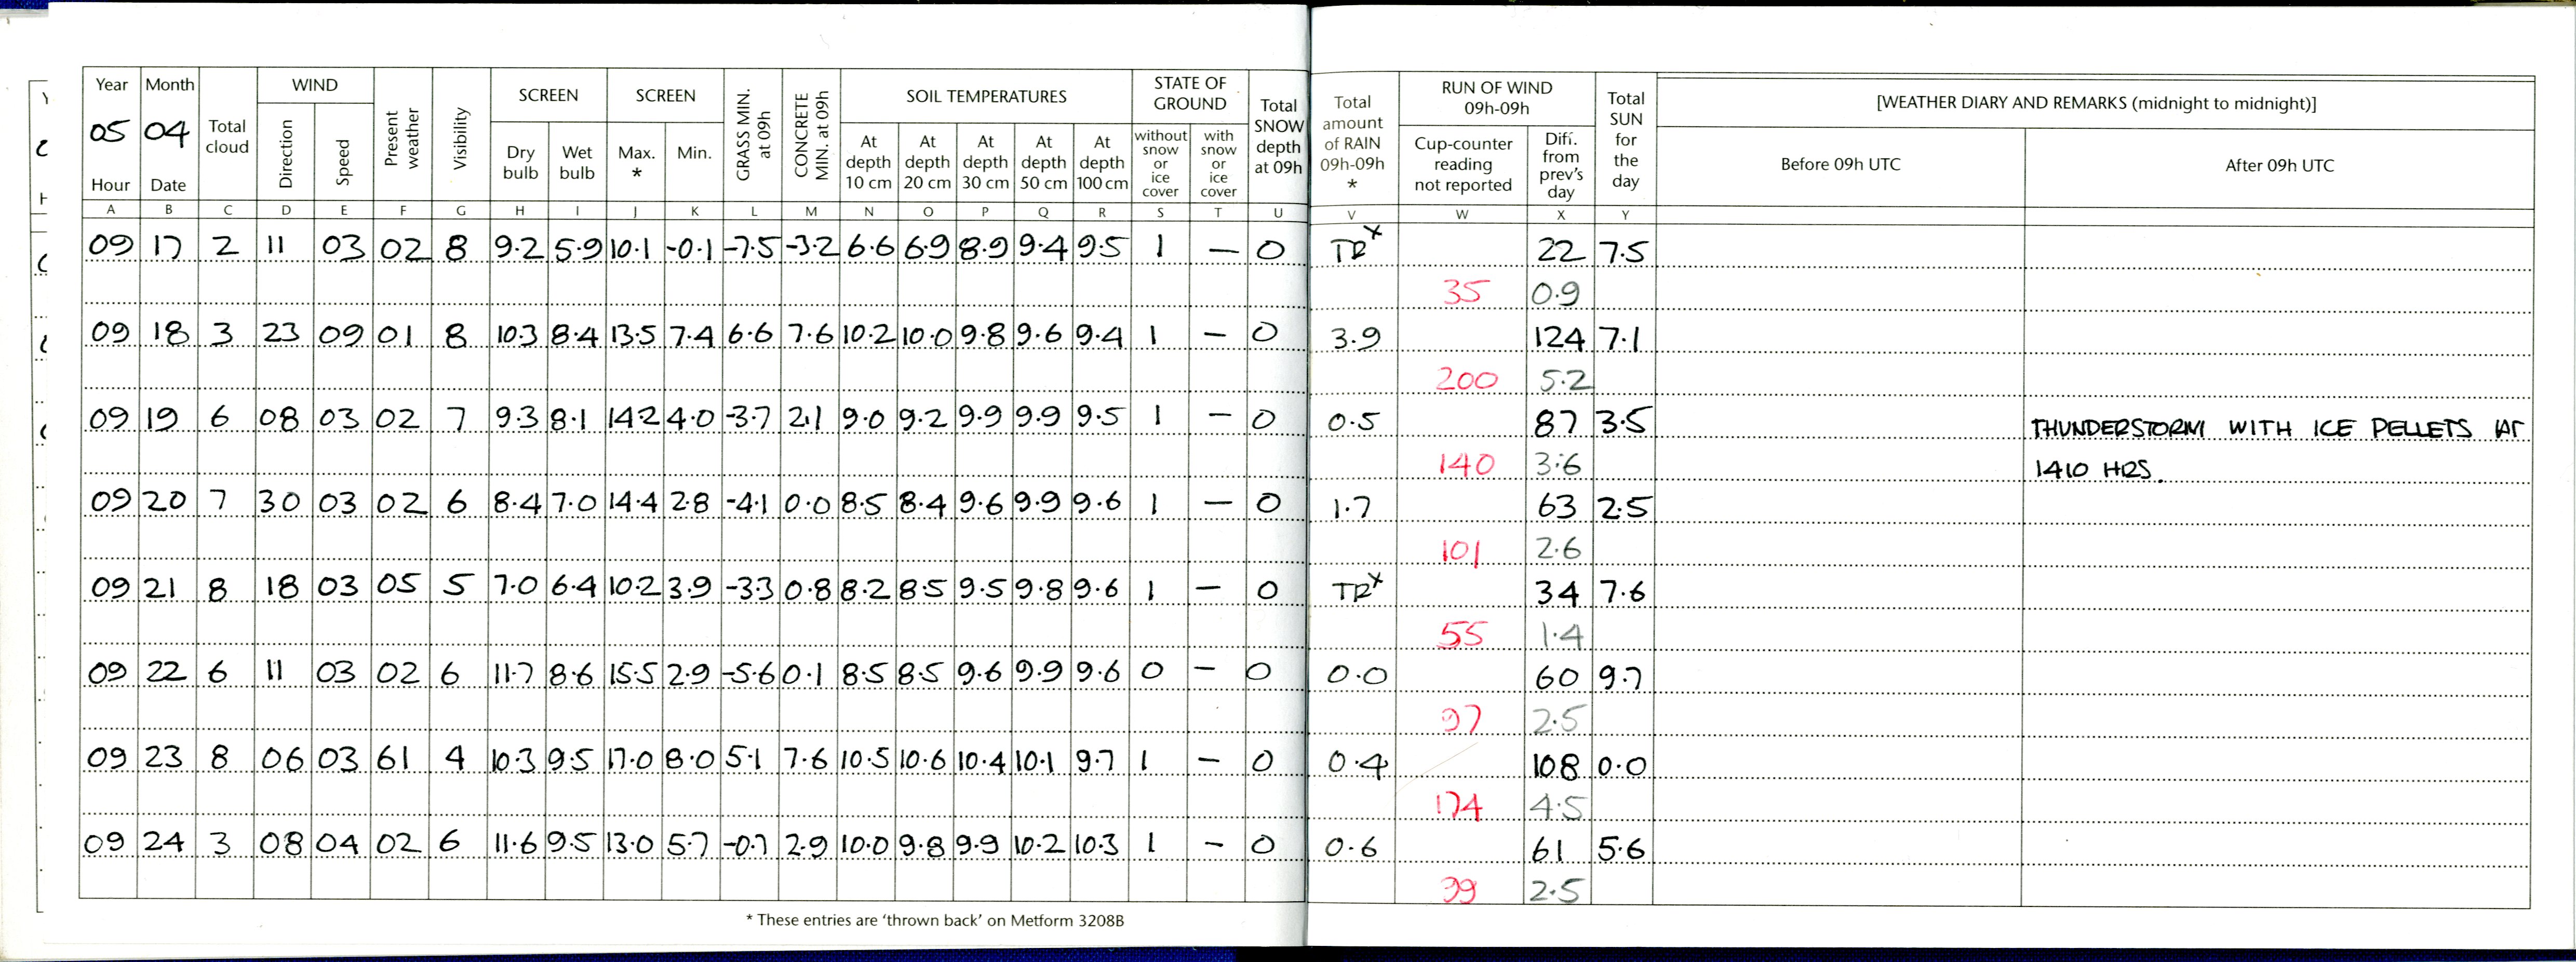 Year Month Total cloud WIND Present weather Visibility SCREEN SCREEN GRASS MIN. at 09h CONCRETE MIN. at 09h SOIL TEMPERATURES STATE OF GROUND Total SNOW depth at 09h Total amount of RAIN 09h-09h * RUN OF WIND 09h-09h Total SUN for the day [WEATHER DIARY AND REMARKS (midnight to midnight)]
05 04 Direction Speed Dry bulb Wet bulb Max. * Min. At depth 10 cm At depth 20 cm At depth 30 cm At depth 50 cm At depth 100 cm without snow or ice cover with snow or ice cover Cup-counter reading not reported Diff. from prev's day Before 09h UTC After 09h UTC
Hour Date
A B C D E F G H I J K L M N O P Q R S T U V W X Y
09 17 2 11 03 02 8 9.2 5.9 10.1 -0.1 -7.5 -3.2 6.6 6.9 8.9 9.4 9.5 1 — 0 TR x 22 7.5
35 0.9
09 18 3 23 09 01 8 10.3 8.4 13.5 7.4 6.6 7.6 10.2 10.0 9.8 9.6 9.4 1 — 0 3.9 124 7.1
200 5.2
09 19 6 08 03 02 7 9.3 8.1 14.2 4.0 -3.7 2.1 9.0 9.2 9.9 9.9 9.5 1 — 0 0.5 87 3.5 THUNDERSTORM WITH ICE PELLETS AT
140 3.6 1410 HRS.
09 20 7 30 03 02 6 8.4 7.0 14.4 2.8 -4.1 0.0 8.5 8.4 9.6 9.9 9.6 1 — 0 1.7 63 2.5
101 2.6
09 21 8 18 03 05 5 7.0 6.4 10.2 3.9 -3.3 0.8 8.2 8.5 9.5 9.8 9.6 1 — 0 TR x 34 7.6
55 1.4
09 22 6 11 03 02 6 11.7 8.6 15.5 2.9 -5.6 0.1 8.5 8.5 9.6 9.9 9.6 0 — 0 0.0 60 9.7
97 2.5
09 23 8 06 03 61 4 10.3 9.5 17.0 8.0 5.1 7.6 10.5 10.6 10.4 10.1 9.7 1 — 0 0.4 108 0.0
174 4.5
09 24 3 08 04 02 6 11.6 9.5 13.0 5.7 -0.7 2.9 10.0 9.8 9.9 10.2 10.3 1 — 0 0.6 61 5.6
99 2.5
* These entries are 'thrown back' on Metform 3208B